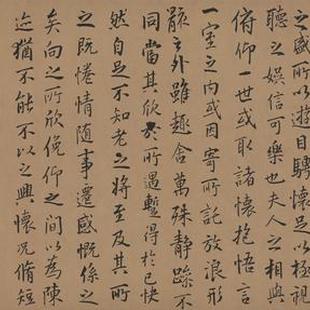 之盛所以遊目騁懷足以極視
聽之娛信可樂也夫人之相與
俯仰一世或取諸懷抱悟言
一室之內或因寄所託放浪形
骸之外雖趣舍萬殊靜躁不
同當其欣於所遇蹔得於己快
然自足不知老之將至及其所
之既惓情隨事遷感慨係之
矣向之所欣俛仰之間以為陳
迹猶不能不以之興懷況脩短